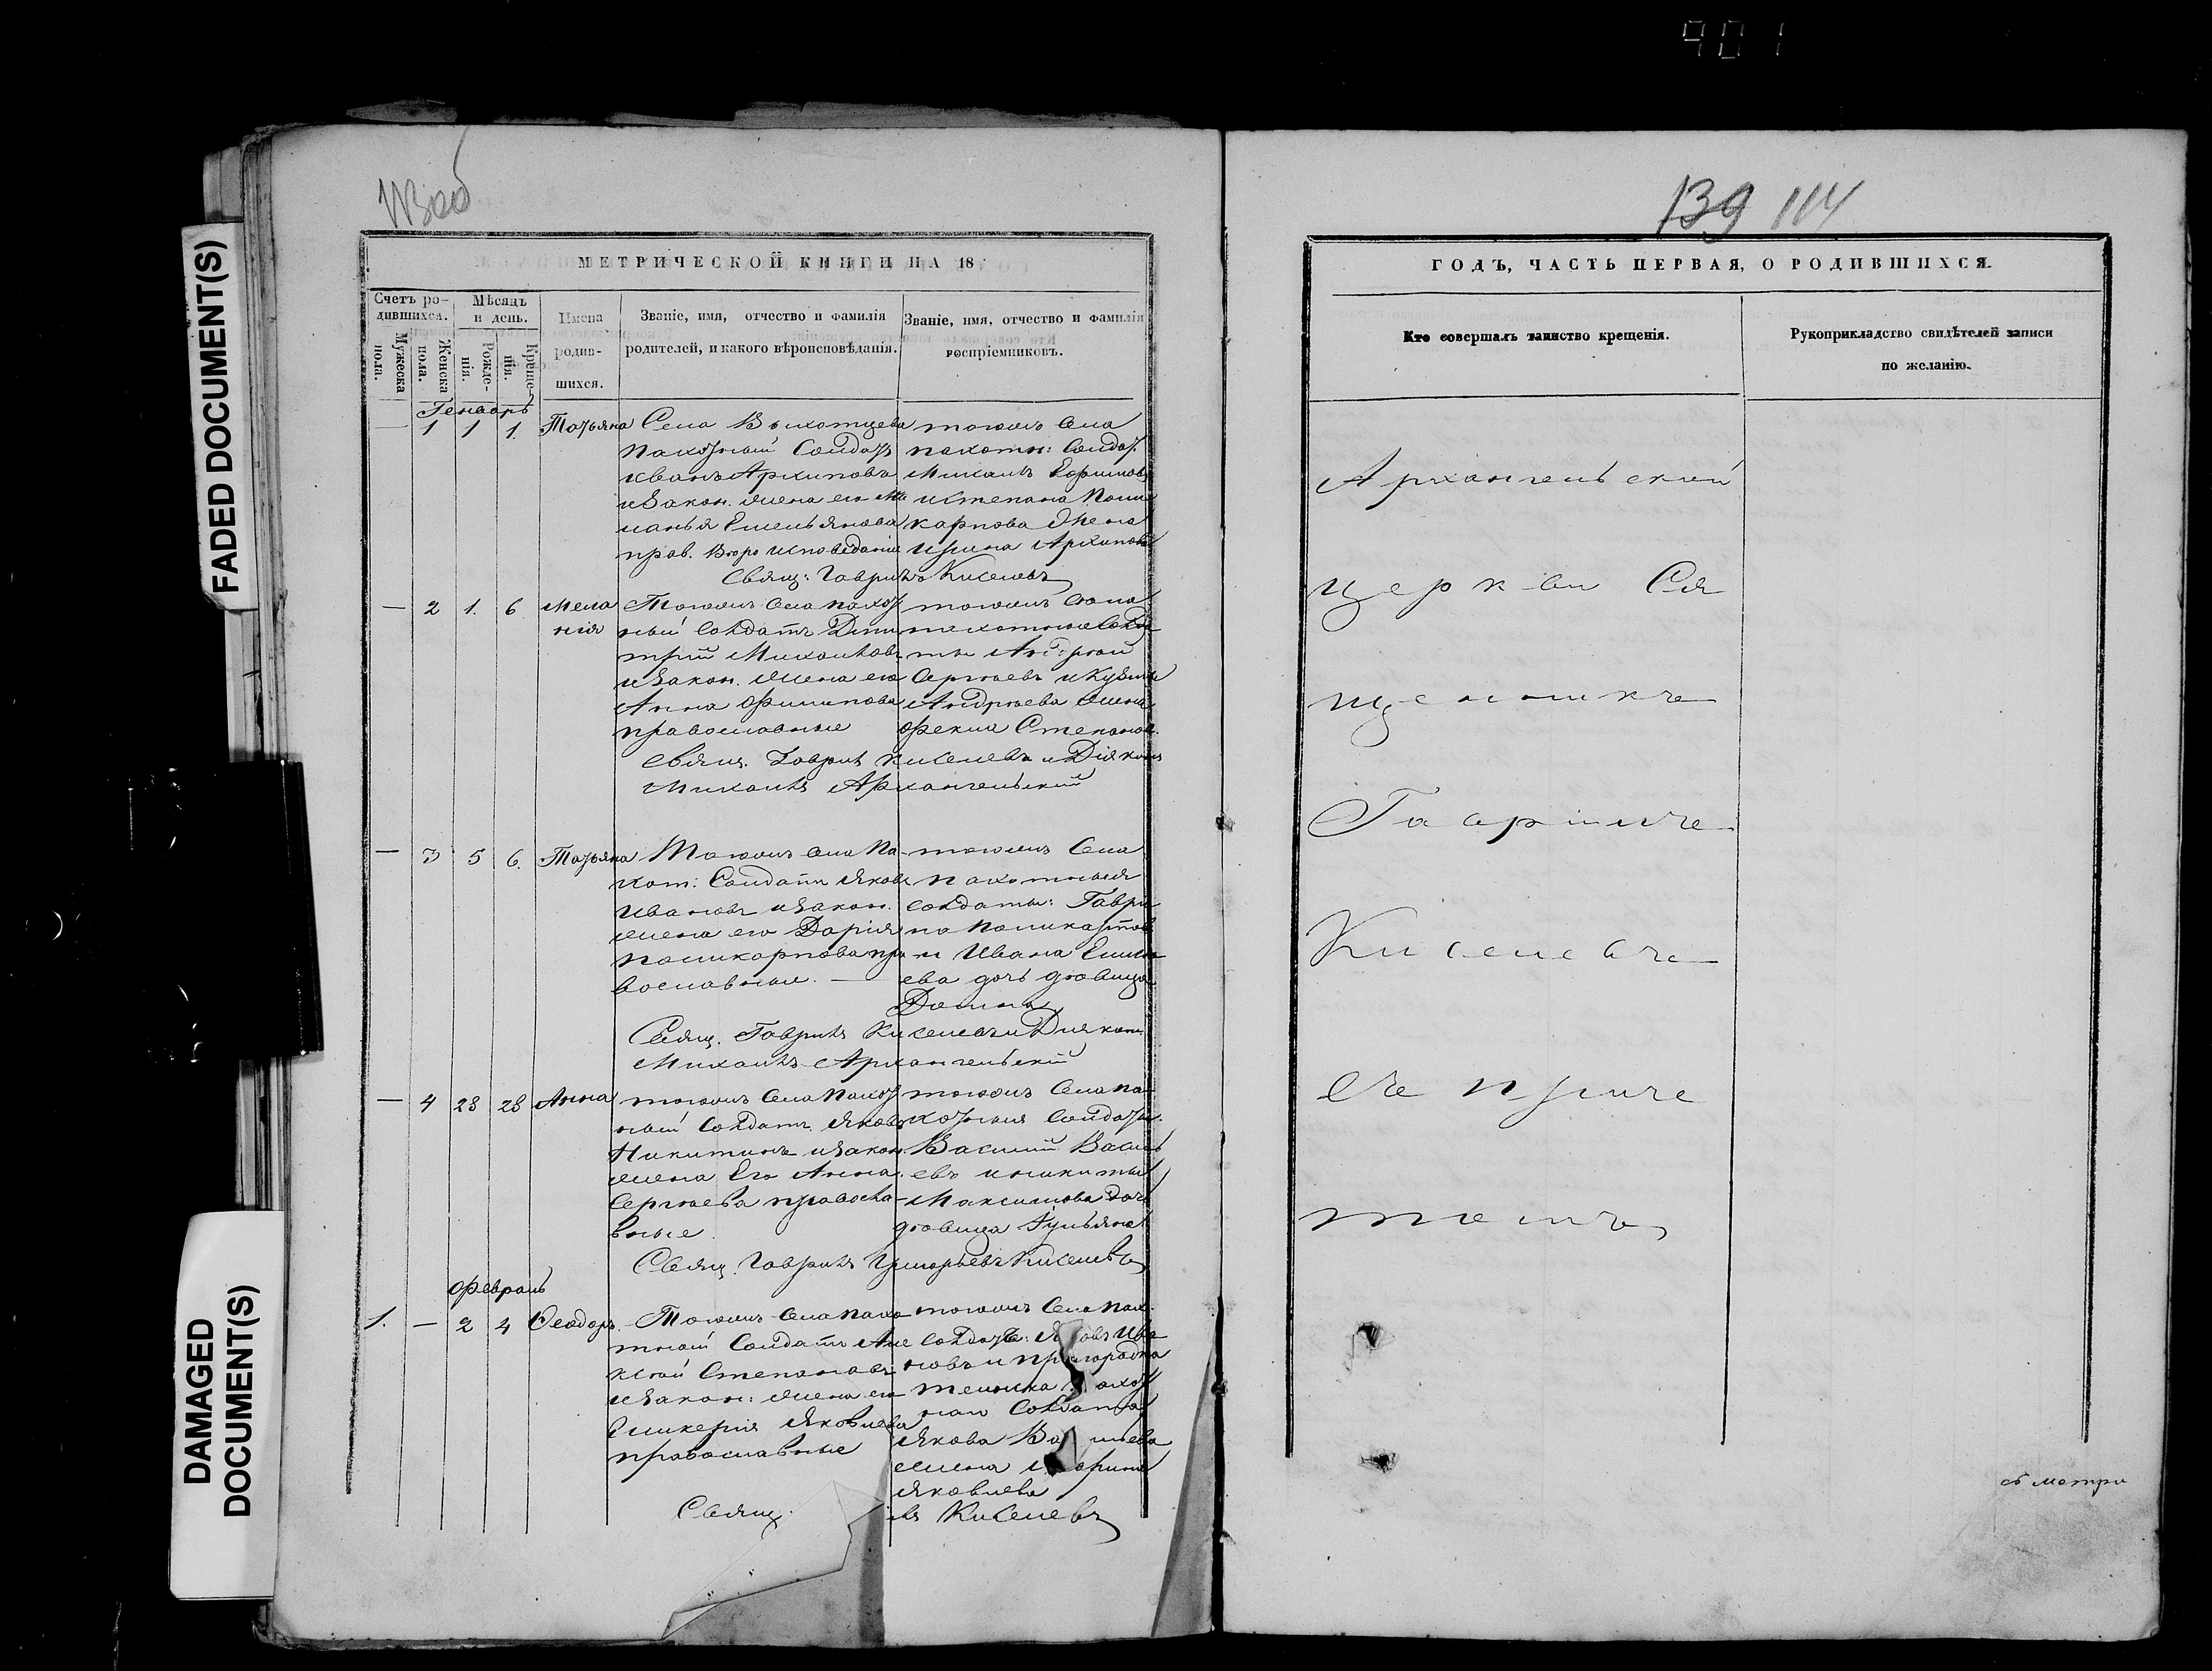 901
FADED DOCUMENT(S)
DAMAGED
DOCUMENT(S)
139 114
МЕТРИЧЕСКОЙ КНИГИ НА 18
Счетъ ро-
дившихся.
Мужеска
пола.
Женска
пола.
Мѣсяцъ
и день.
Рожде-
нія.
Креще-
нія.
Имена
родив-
шихся.
Званіе, имя, отчество и фамилія
родителей, и какого вѣроисповѣданія.
Званіе, имя, отчество и фамилія
воспріемниковъ.
Генварь
— 1 1 1. Татьяна
Села Выхотцева
пахотный Солдатъ
Иванъ Архиповъ
и закон. жена его Ме
ланья Емельянова
прав. Вѣро исповѣданія
тогожъ Села
пахотн: Солдат.
Михаилъ Ефимовъ
и Степана Поли
карпова жена
Ирина Архипова
Свящ: Гавріилъ Киселевъ
— 2 1. 6 Мела
нія
Тогожъ Села пахот
ный Солдатъ Дми
трій Михайловъ
и закон. жена его
Анна Филипова
православные
тогожъ Села
пахотные Солда
ты Андрей
Сергѣевъ и Кузмы
Андрѣева жена
Фекла Степанов.
Свящ. Гавріилъ Киселевъ и Діяконъ
Михаилъ Архангельскій
— 3 5 6. Татьяна
Тогожъ Села Па-
хот: Солдатъ Яковъ
Ивановъ и закон.
жена его Дарія
Поликарпова пра
вославные. —
тогожъ Села
пахотныя
Солдаты: Гаври
ла Поликарпов
и Ивана Емель
ева дочь дѣвица
Домна
Свящ. Гавріилъ Киселевъ и Діяконъ
Михаилъ Архангельскій
— 4 28 28 Анна
тогожъ Села Пахот
ный Солдатъ Яковъ
Никитинъ и закон.
жена Его Анна
Сергѣева правосла-
вные
тогожъ Села па-
хотныя Солдаты.
Василій Василь
евъ и никиты
Максимова дочь
дѣвица Ѓульяна
Свящ. Гавріилъ Григорьевъ Киселевъ
Февраль
1. — 2 4 Ѳеодоръ.
Тогожъ Села Пахо
тный Солдатъ Але
ксѣй Степановъ
и закон: жена его
Гликерія Яковлева
православные
тогожъ Села пах.
Солдатъ: Яковъ Ива
новъ и
наго Солдата
Якова
жена
Яковлева
Свящ. Киселевъ
ГОДЪ, ЧАСТЬ ПЕРВАЯ, О РОДИВШИХСЯ.
Кто совершалъ таинство крещенія.
Рукоприкладство свидѣтелей записи
по желанію.
Архангельской
церкви Свя
щенникъ
Гавріилъ
Киселевъ
съ приче
томъ
сѣ метри